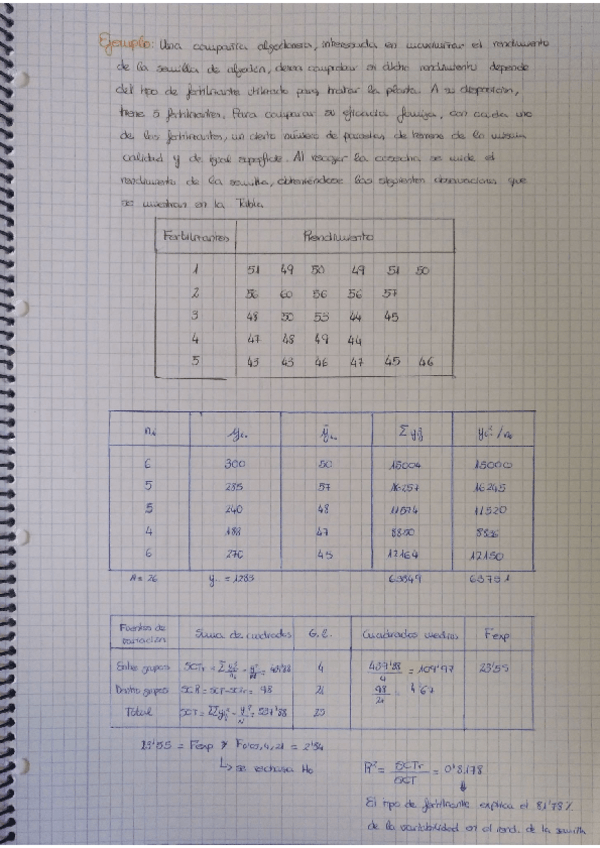 Ejemplo: Una compañía algodonera, interesada en maximizar el rendimiento
de la semilla de algodón, desea comprobar si dicho rendimiento depende
del tipo de fertilizante utilizado para tratar la planta. A su disposición,
tiene 5 fertilizantes. Para comparar su eficacia fumiga, con cada uno
de los fertilizantes, un cierto número de parcelas de terreno de la misma
calidad y de igual superficie. Al recoger la cosecha se mide el
rendimiento de la semilla, obteniéndose las siguientes observaciones que
se muestran en la Tabla
Fertilizantes Rendimiento
1 51 49 50 49 51 50
2 56 60 56 56 57
3 48 50 53 44 45
4 47 48 49 44
5 43 43 46 47 45 46
nᵢ yᵢ. ȳᵢ. Σ yᵢⱼ² yᵢ.²/nᵢ
6 300 50 15004 15000
5 285 57 16257 16245
5 240 48 11574 11520
4 188 47 8850 8836
6 270 45 12164 12150
n = 26 y.. = 1283 63849 63751
Fuentes de variación Suma de cuadrados G.L. Cuadrados medios Fexp
Entre grupos SCTr = 4 439'88/4 = 109'97 23'55
Dentro grupos SCR = SCT-SCTr = 98 21 98/21 = 4'67
Total SCT = = 537'88 25
23'55 = Fexp > F0'05,4,21 = 2'84
↳ se rechaza H₀
R² = SCTr/SCT = 0'8178
El tipo de fertilizante explica el 81'78%
de la variabilidad en el rend. de la semilla